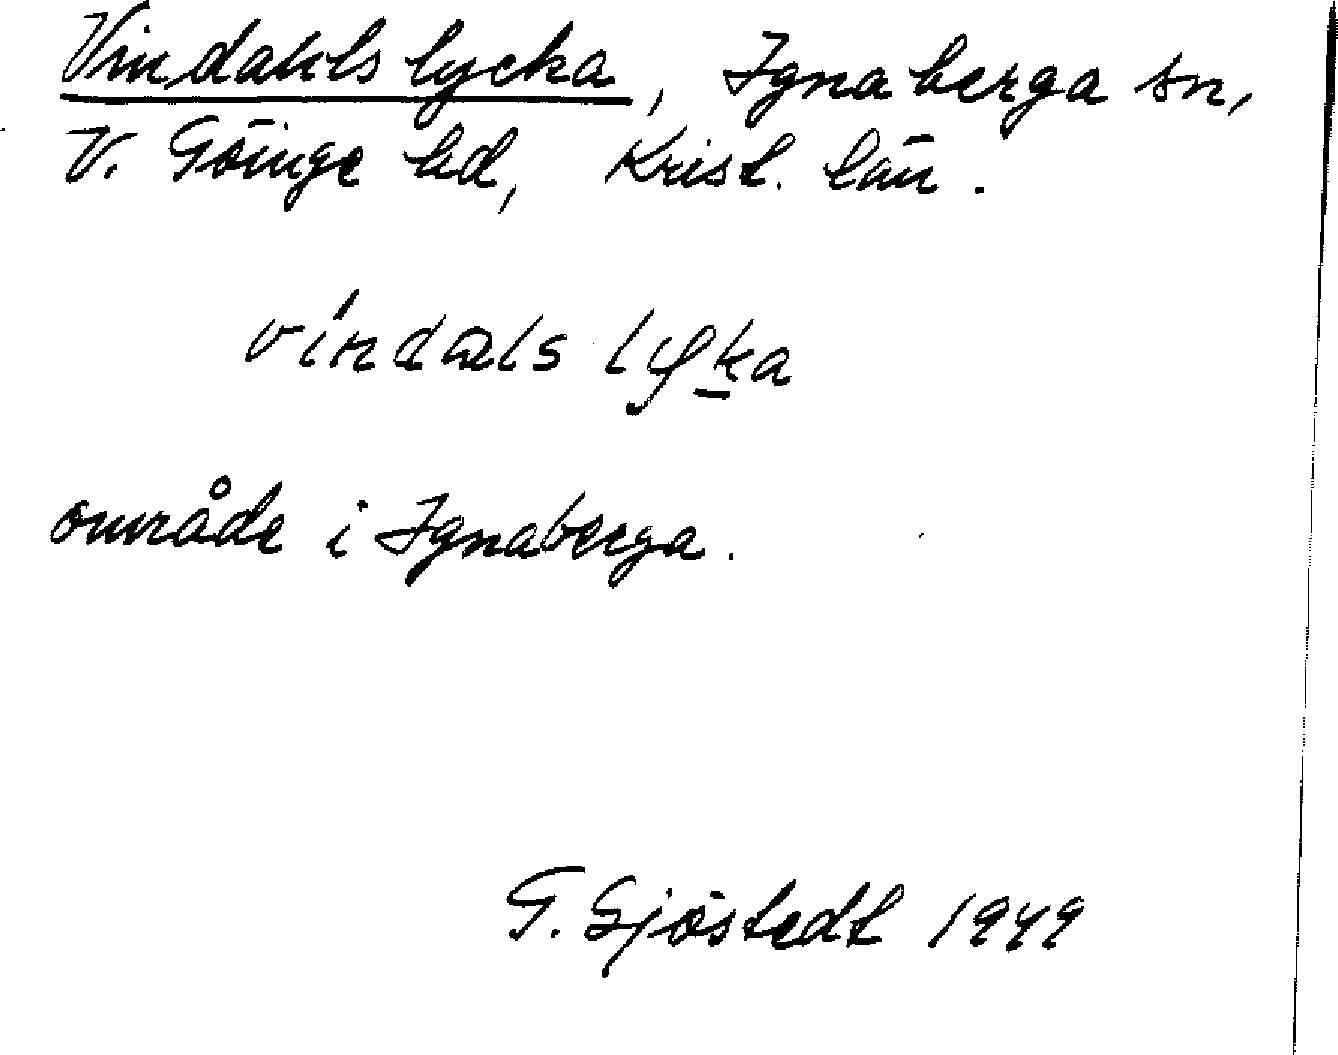 Vindahls lycka, Ignaberga sn,
V. Göinge hd, Krist. län.
víndals lyka
område i Ignaberga.
G. Sjöstedt 1949